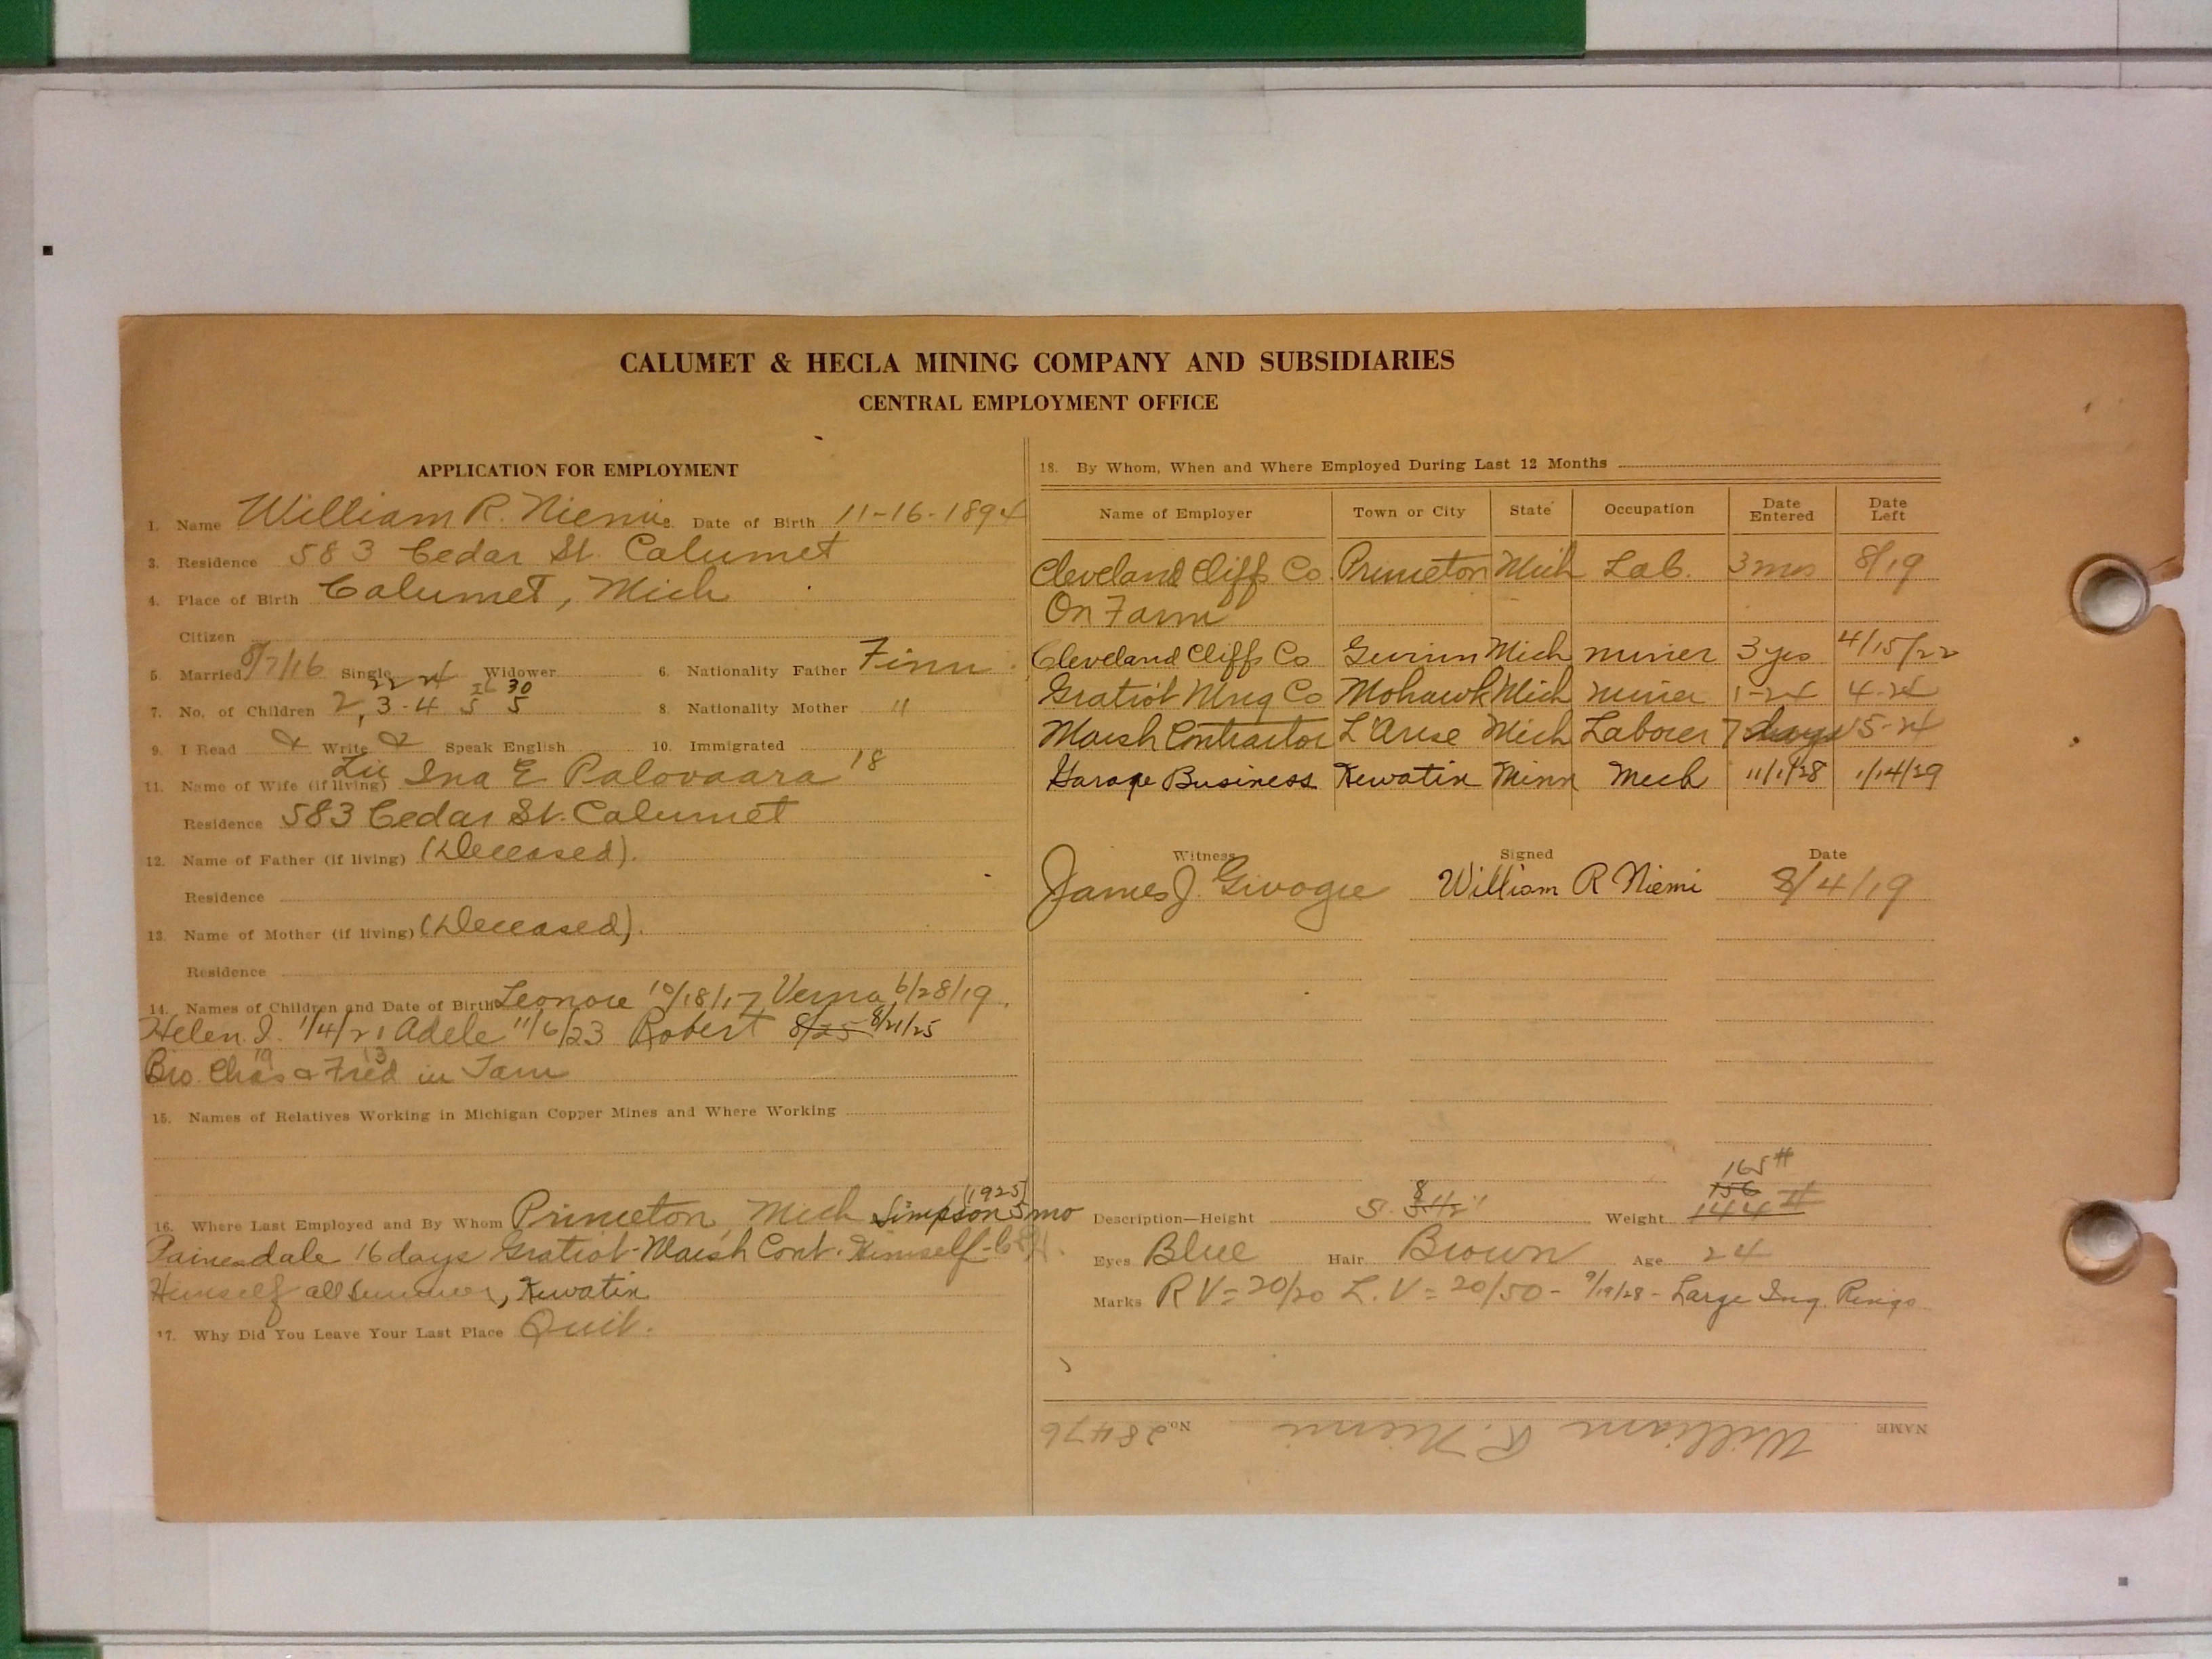 CALUMET & HECLA MINING COMPANY AND SUBSIDIARIES
CENTRAL EMPLOYMENT OFFICE
APPLICATION FOR EMPLOYMENT
1. Name William R. Niemi 2. Date of Birth 11-16-1894
3. Residence 583 Cedar St. Calumet
4. Place of Birth Calumet, Mich
Citizen
5. Married 8/7/16 Single Widower 6. Nationality Father Finn
22 24 26 30
7. No. of Children 2, 3-4 5 5 8. Nationality Mother "
9. I Read & Write & Speak English 10. Immigrated
11. Name of Wife (if living) Ina E Palovaara 18
Residence 583 Cedar St. Calumet
12. Name of Father (if living) (Deceased).
Residence
13. Name of Mother (if living) (Deceased).
Residence
14. Names of Children and Date of Birth Leonore 10/18/17 Verna 6/28/19.
Helen I. 1/4/21 Adele 11/6/23 Robert 8/25 8/21/25
19 13
Bro. Chas & Fred in Tam
15. Names of Relatives Working in Michigan Copper Mines and Where Working
(1925)
16. Where Last Employed and By Whom Princeton, Mich Simpson 5 mo
Painesdale 16 days Gratiot-Marsh Cont. Himself-
Himself all Summer, Kewatin
17. Why Did You Leave Your Last Place Quit.
18. By Whom, When and Where Employed During Last 12 Months
Name of Employer Town or City State Occupation Date Entered Date Left
Cleveland Cliffs Co Princeton Mich Lab. 3 mos 8/19
On Farm
Cleveland Cliffs Co Gwinn Mich miner 3 yrs 4/15/22
Gratiot Mng Co Mohawk Mich miner 1-24 4-24
Marsh Contractor L'Anse Mich Laborer 7 days 5-24
Garage Business Kewatin Minn Mech 11/1/28 1/14/29
Witness Signed Date
James J. William R Niemi 8/4/19
165 #
8 156
Description—Height 5. 5 1/2" Weight 144 #
Eyes Blue Hair Brown Age 24
Marks R V = 20/20 L. V = 20/50 - 9/19/28 - Large Ing. Rings
NAME William R. Niemi No. 28476